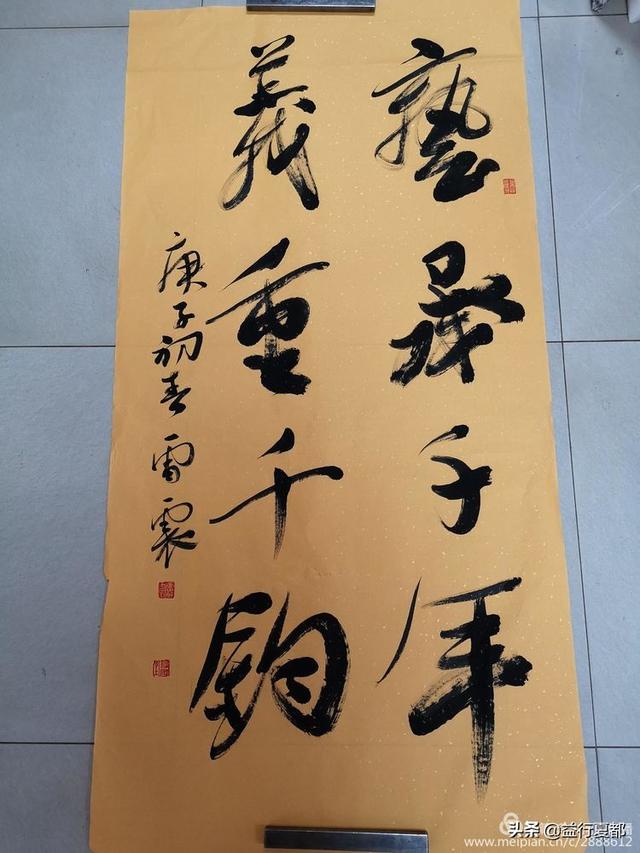 藝千年
義重千鈞
庚子初春雷震
头条 @益行夏都
www.meipian.cn/c/2888612